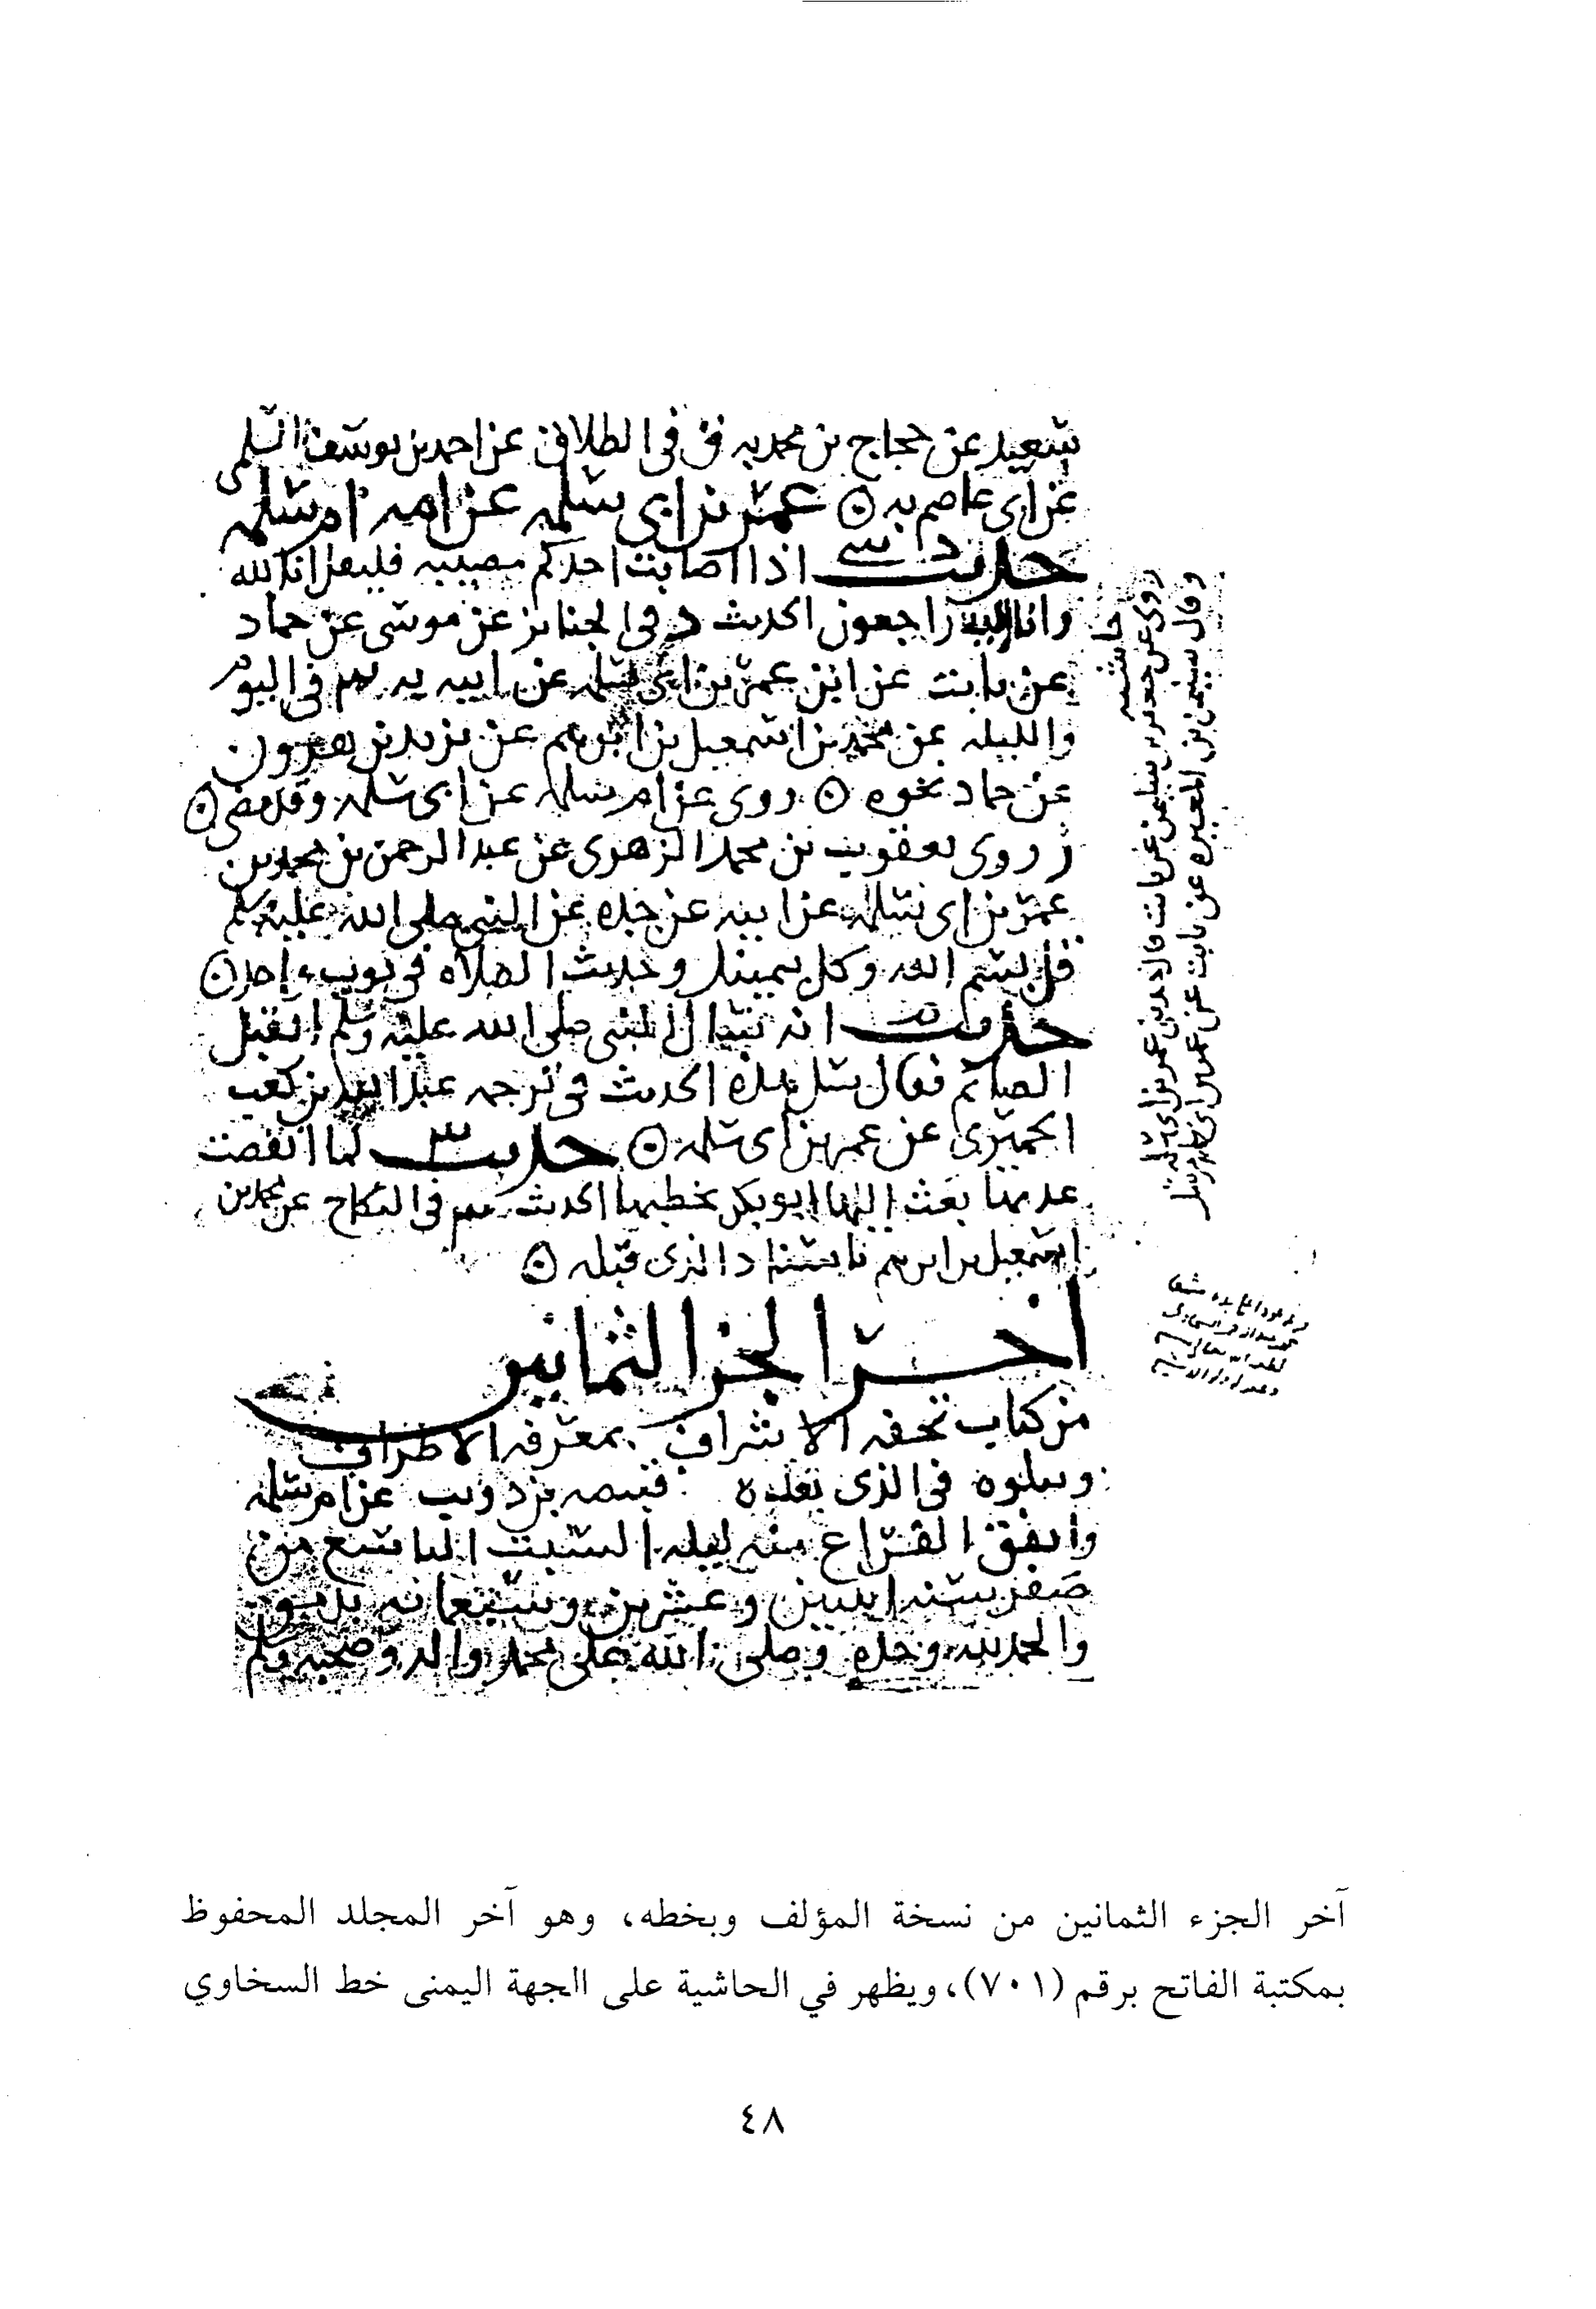 سعيد عن حجاج بن محمد به ق في الطلاق عن احمد بن يوسف السلمي
عن ابي عاصم به ⊙ عمر بن ابي سلمه عن امه ام سلمه
حديث د سي اذا اصابت احدكم مصيبه فليقل انا لله
وانا اليه راجعون الحديث د في الجنائز عن موسى عن حماد
عن ثابت عن ابن عمر بن ابي سلمه عن ابيه به سي في اليوم
والليله عن محمد بن اسمعيل بن ابرهيم عن يزيد بن هرون
عن حماد نحوه ⊙ روى عن ام سلمه عن ابي سلمه وقد مضى ⊙
ز روى يعقوب بن محمد الزهري عن عبد الرحمن بن محمد بن
عمر بن ابي سلمه عن ابيه عن جده عن النبي صلى الله عليه وسلم
قل بسم الله وكل بيمينك وحديث الصلاه في ثوب واحد ⊙
حديث انه سال النبي صلى الله عليه وسلم ايقبل
الصائم فقال سل هذه الحديث في ترجمه عبد الله بن كعب
الحميري عن عمر بن ابي سلمه ⊙ حديث س لما انقضت
عدتها بعث اليها ابو بكر يخطبها الحديث س في النكاح عن محمد بن
اسمعيل بن ابرهيم باسناد الذي قبله ⊙
اخر الجز الثمانين
من كتاب تحفه الاشراف بمعرفه الاطراف
ويتلوه في الذي بعده قبيصه بن ذويب عن ام سلمه
واتفق الفراغ منه ليله السبت التاسع من
صفر سنه اثنين وعشرين وسبعمائه بدمشق
والحمد لله وحده وصلى الله على محمد واله وصحبه وسلم
روى عن جعفر بن سليمن عن ثابت قال حدثني عمر بن ابي سلمه
وقال سليمن بن المغيره عن ثابت عن عمر بن ابي سلمه
آخر الجزء الثمانين من نسخة المؤلف وبخطه، وهو آخر المجلد المحفوظ
بمكتبة الفاتح برقم (٧٠١)، ويظهر في الحاشية على االجهة اليمنى خط السخاوي
٤٨